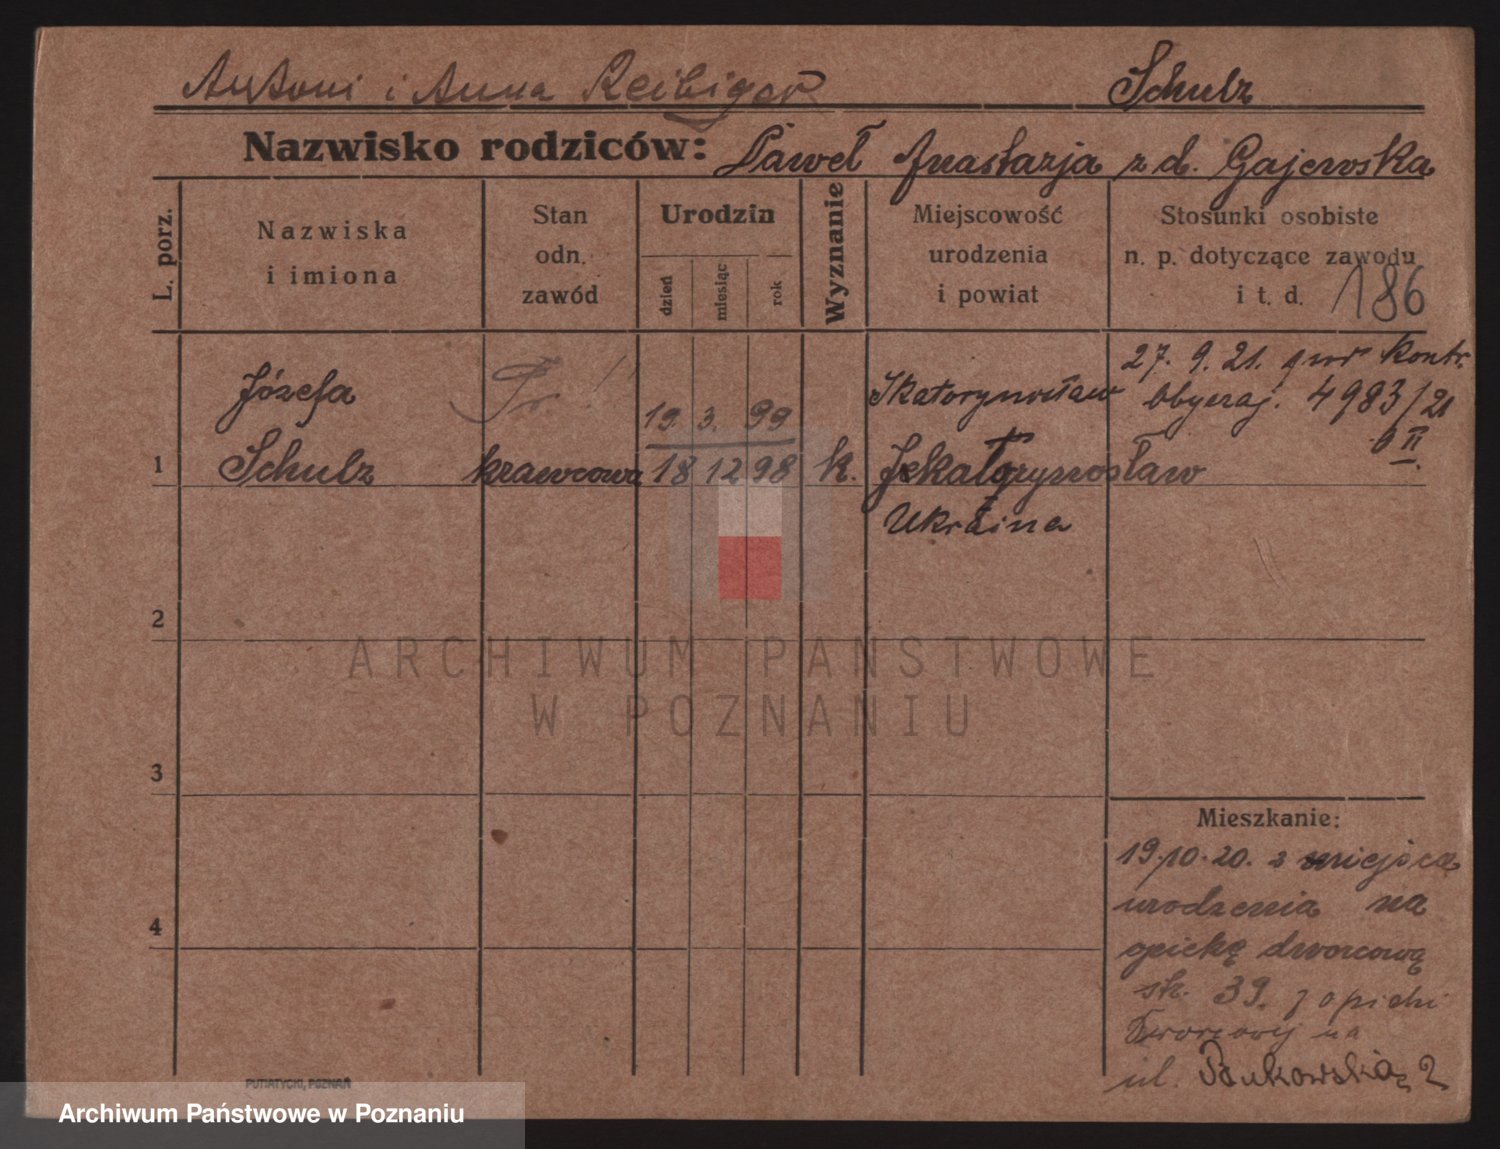 Antoni i Anna Reibiger Schulz
Nazwisko rodziców: Paweł Anastazja z d. Gajewska
L. porz.
Nazwiska
i imiona
Stan
odn.
zawód
Urodzin
dzień
miesiąc
rok
Wyznanie
Miejscowość
urodzenia
i powiat
Stosunki osobiste
n. p. dotyczące zawodu
i t. d. 186
27. 9. 21. kontr.
Obycaj. 4983/21
II
Józefa
19. 3. 99
1 Schulz krawcowa 18 12 98 k. Jekatorynosław
Ukraina
2
3
4
ARCHIWUM PAŃSTWOWE
W POZNANIU
Mieszkanie:
19.10.20. z miejsca
urodzenia na
opiekę dworcową
str. 39. z opieki
Dworcowej na
ul. Bukowską 2
PUTIATYCKI, POZNAŃ
Archiwum Państwowe w Poznaniu